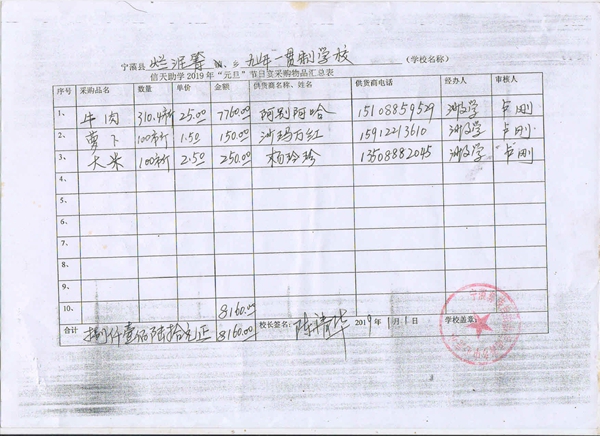 宁蒗县 烂泥箐 乡 九年一贯制学校 (学校名称)
信天助学2019年“元旦”节日菜采购物品汇总表
序号 采购品名 数量 单价 金额 供货商名称、姓名 供货商电话 经办人 审核人
1、 牛肉 310.4市斤 25.00 7760.00 阿别阿哈 15108859529 卢刚
2、 萝卜 100市斤 1.50 150.00 沙玛万红 15912213610 卢刚
3、 大米 100市斤 2.50 250.00 杨玲珍 13508882045 卢刚
4、
5、
6、
7、
8、
9、
10、 8160.00
合计 捌仟壹佰陆拾元正 8160.00 校长签名: 2019年1月1日 学校盖章: